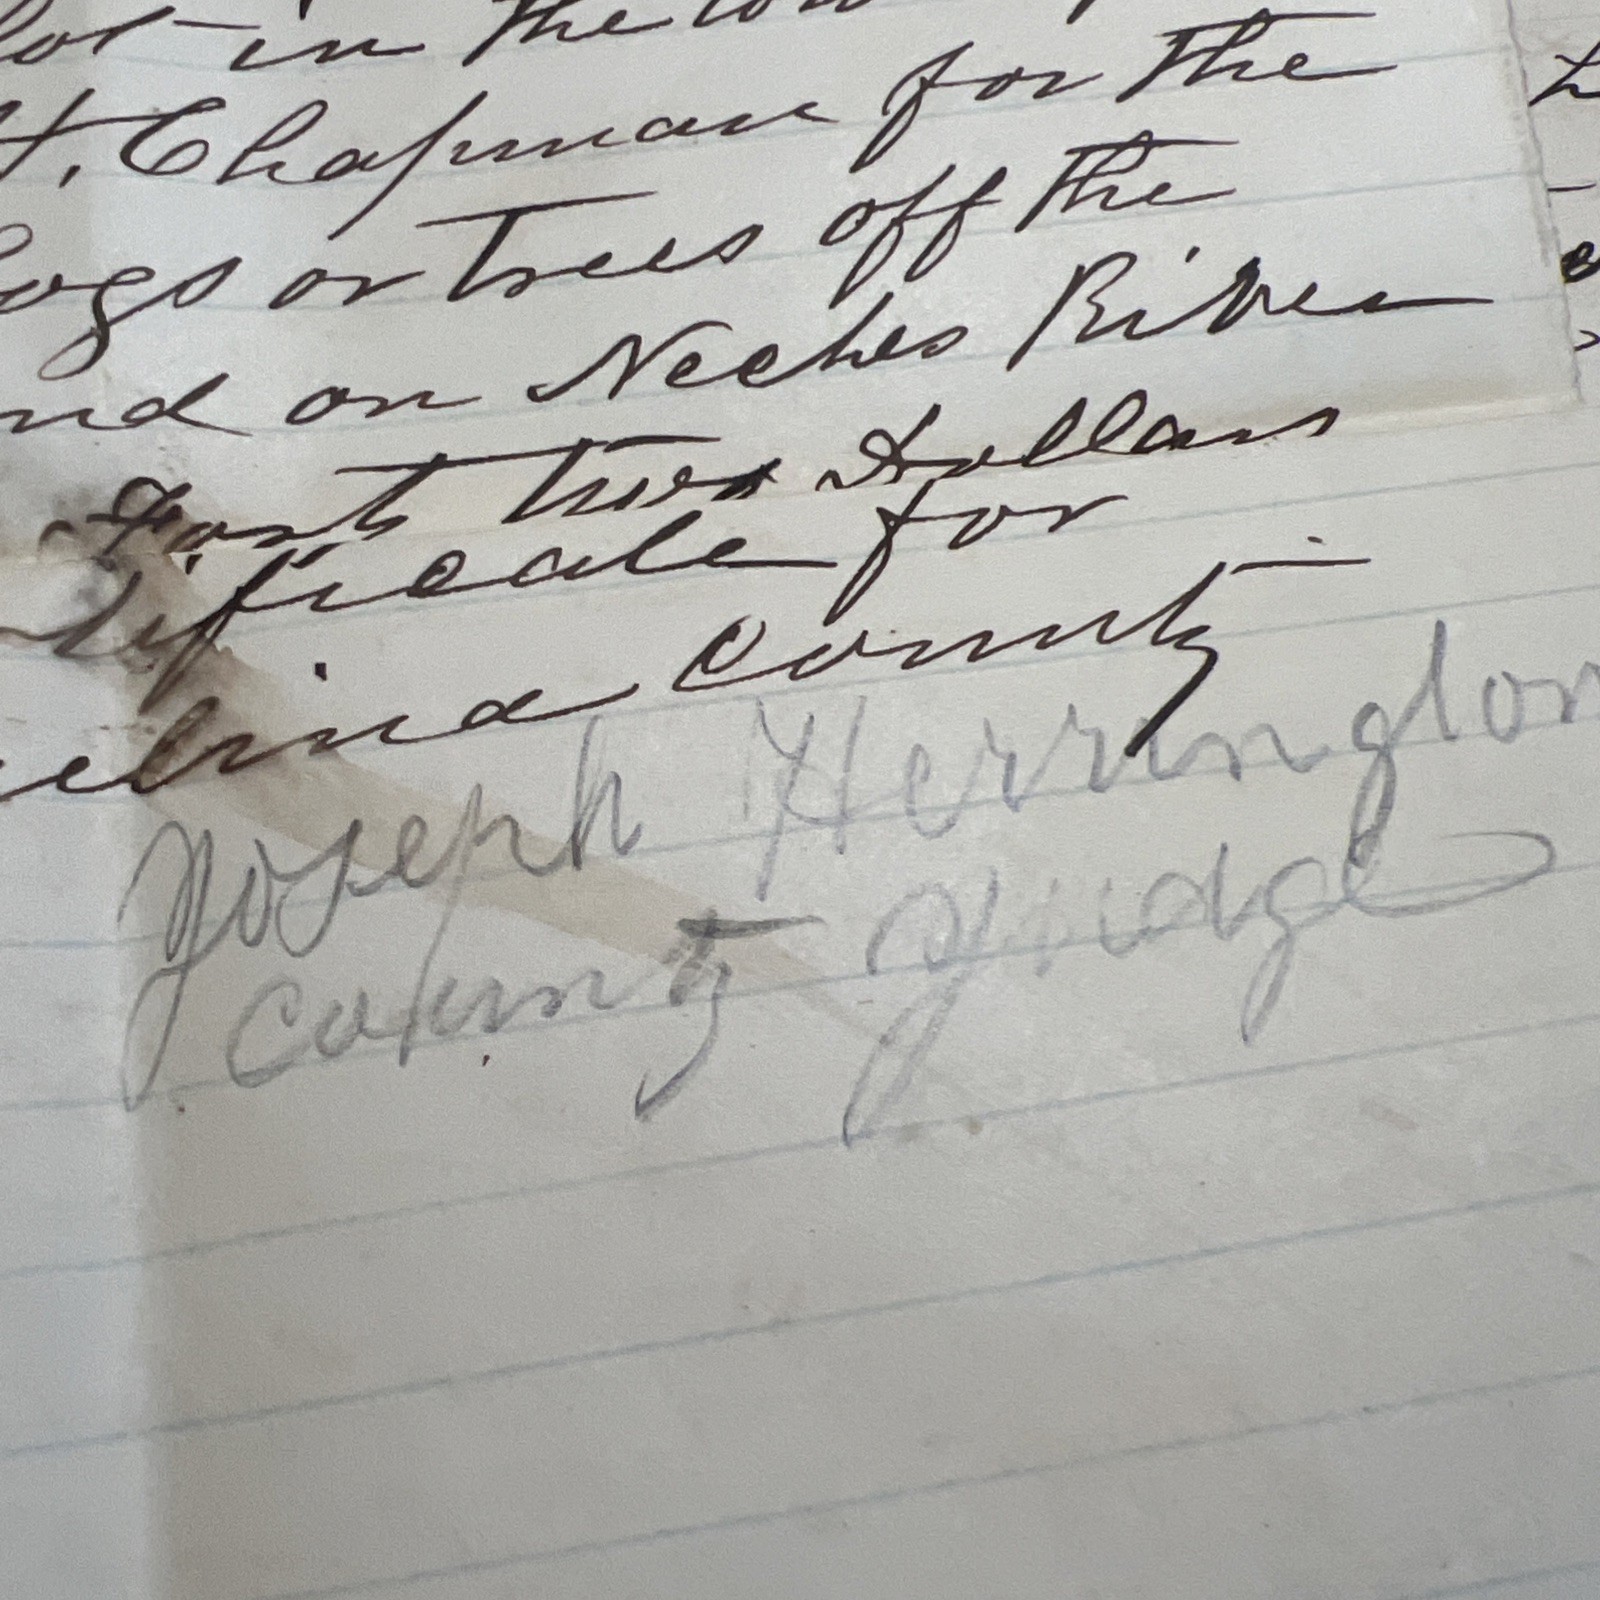 lot in the
H. Chapman for the
logs or trees off the
nd on Neches River
Forty two Dollars
tificate for
elina County
Joseph Herrington
County Judge